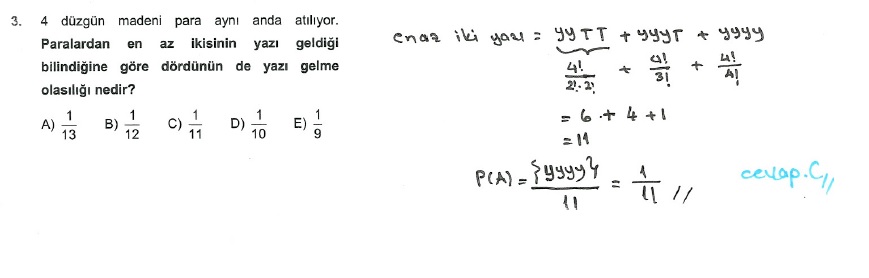 3. 4 düzgün madeni para aynı anda atılıyor.
Paralardan en az ikisinin yazı geldiği
bilindiğine göre dördünün de yazı gelme
olasılığı nedir?
A) 1/13 B) 1/12 C) 1/11 D) 1/10 E) 1/9
en az iki yazı = yyTT + yyyT + yyyy
4!/2!.2! + 4!/3! + 4!/4!
= 6 + 4 + 1
= 11
P(A) = {yyyy}/11 = 1/11 //
cevap.C//